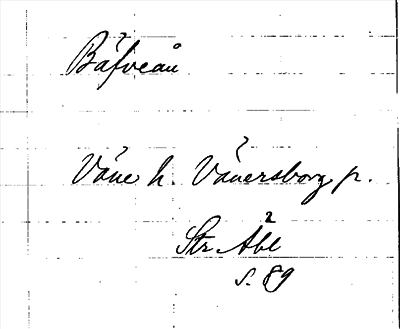 Bäfveån
Väne h. Vänersborg p.
Str Åbl
s. 89